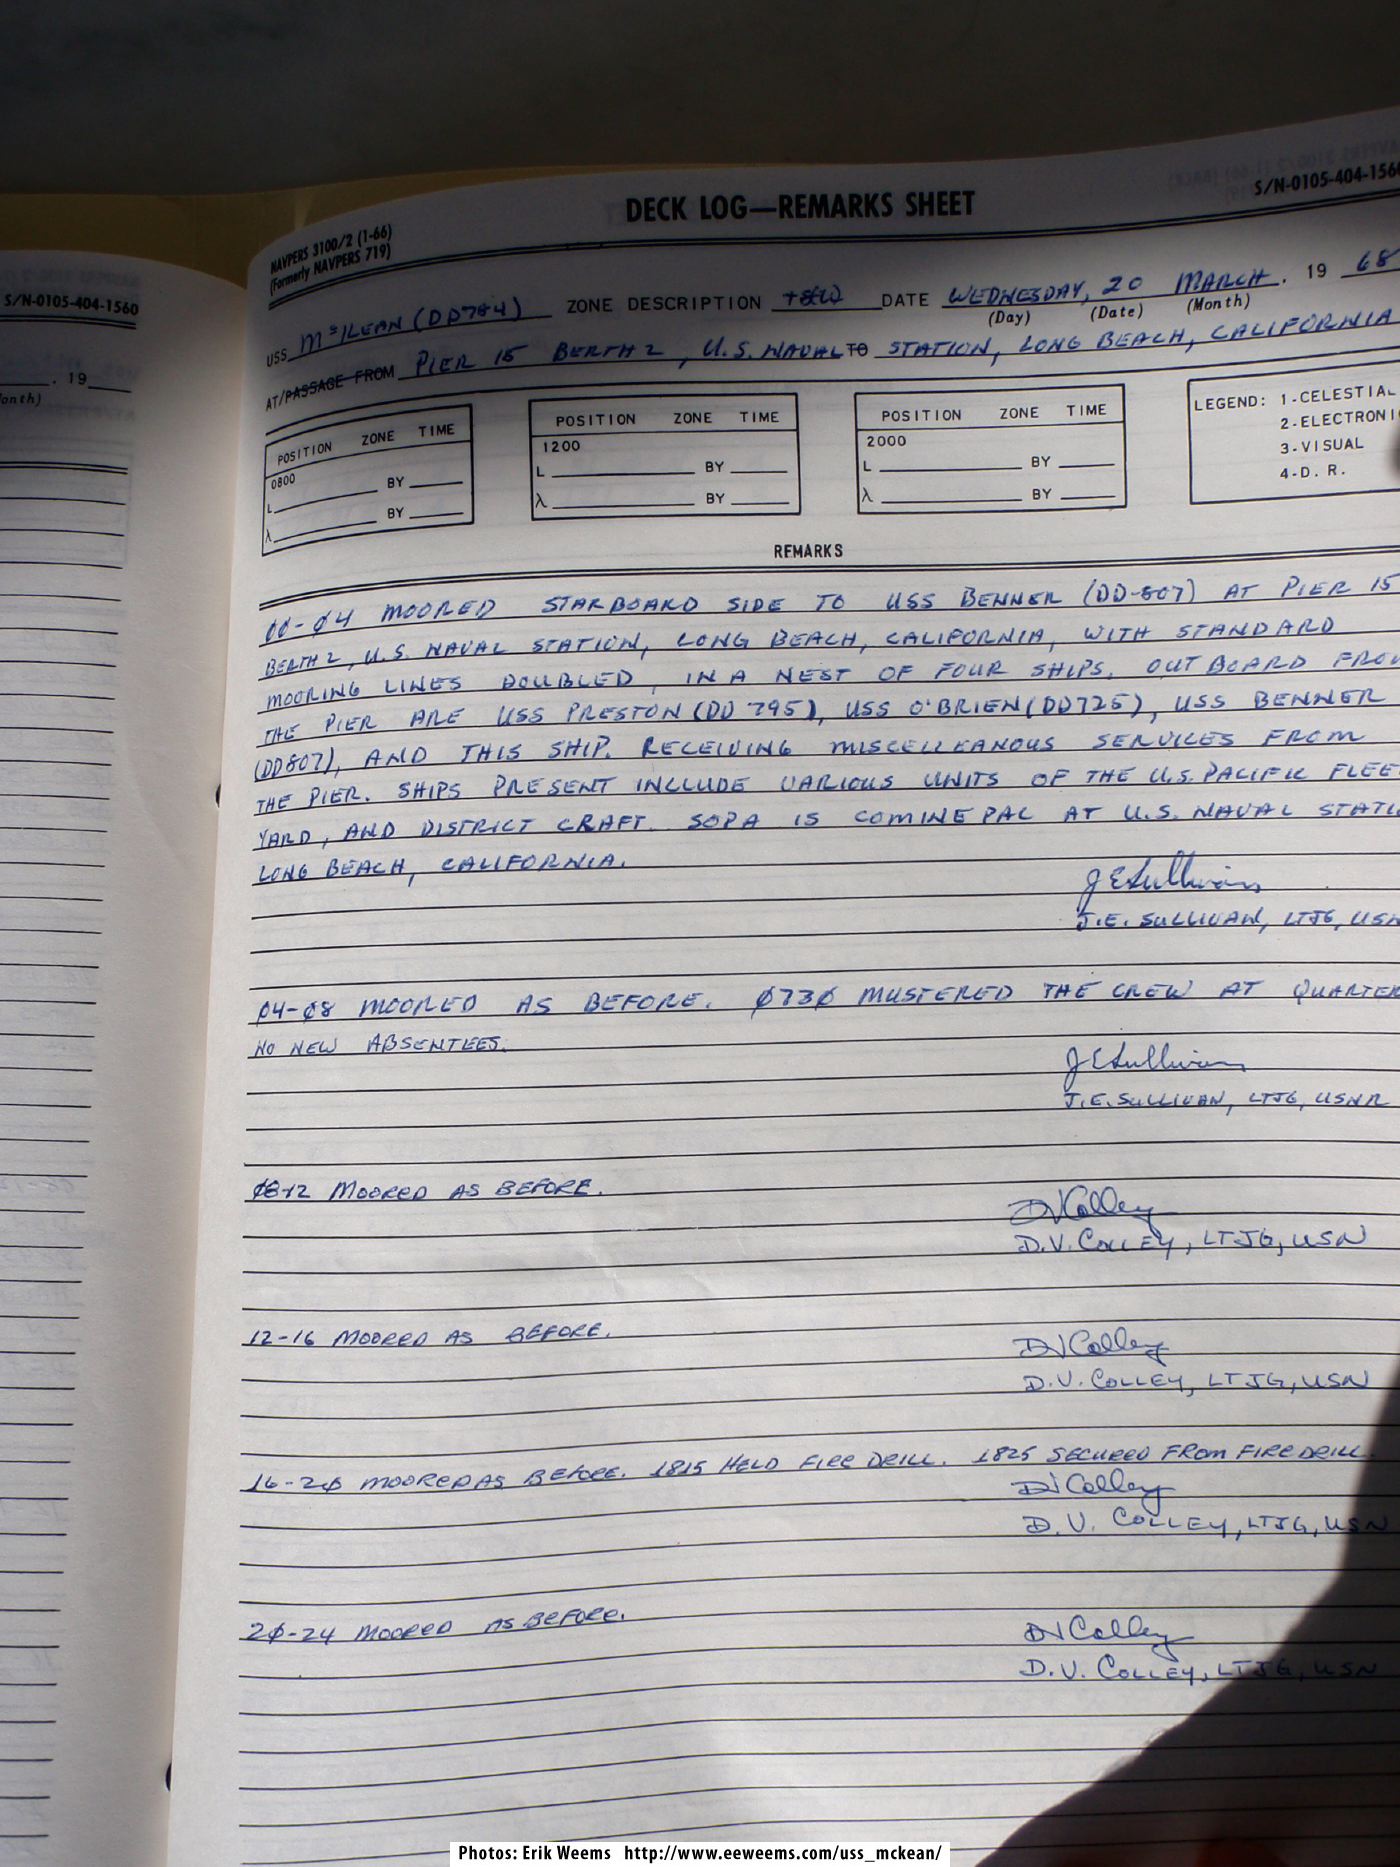 S/N-0105-404-1560
. 19
onth)
NAVPERS 3100/2 (1-66)
(Formerly NAVPERS 719)
DECK LOG—REMARKS SHEET
S/N-0105-404-156
USS McKEAN (DD784) ZONE DESCRIPTION DATE WEDNESDAY, 20 MARCH . 19 68
(Day) (Date) (Month)
AT/PASSAGE FROM PIER 15 BERTH 2, U.S. NAVAL TO STATION, LONG BEACH, CALIFORNIA
POSITION ZONE TIME
0800
L BY
λ BY
POSITION ZONE TIME
1200
L BY
λ BY
POSITION ZONE TIME
2000
L BY
λ BY
LEGEND: 1-CELESTIAL
2-ELECTRONI
3-VISUAL
4-D. R.
REMARKS
00-04 MOORED STARBOARD SIDE TO USS BENNER (DD-807) AT PIER 15
BERTH 2, U.S. NAVAL STATION, LONG BEACH, CALIFORNIA, WITH STANDARD
MOORING LINES DOUBLED, IN A NEST OF FOUR SHIPS. OUTBOARD FROM
THE PIER ARE USS PRESTON (DD 795), USS O'BRIEN (DD725), USS BENNER
(DD807), AND THIS SHIP. RECEIVING MISCELLEANOUS SERVICES FROM
THE PIER. SHIPS PRESENT INCLUDE VARIOUS UNITS OF THE U.S. PACIFIC FLEE
YARD, AND DISTRICT CRAFT. SOPA IS COMINEPAC AT U.S. NAVAL STATIO
LONG BEACH, CALIFORNIA.
J E Sullivan
J.E. SULLIVAN, LTJG, USN
04-08 MOORED AS BEFORE. 0730 MUSTERED THE CREW AT QUARTER
NO NEW ABSENTEES.
J E Sullivan
J.E. SULLIVAN, LTJG, USNR
08-12 MOORED AS BEFORE.
DV Colley
D.V. COLLEY, LTJG, USN
12-16 MOORED AS BEFORE.
DV Colley
D.V. COLLEY, LTJG, USN
16-20 MOORED AS BEFORE. 1815 HELD FIRE DRILL. 1825 SECURED FROM FIRE DRILL.
DV Colley
D.V. COLLEY, LTJG, USN
20-24 MOORED AS BEFORE.
DV Colley
D.V. COLLEY, LTJG, USN
Photos: Erik Weems http://www.eeweems.com/uss_mckean/